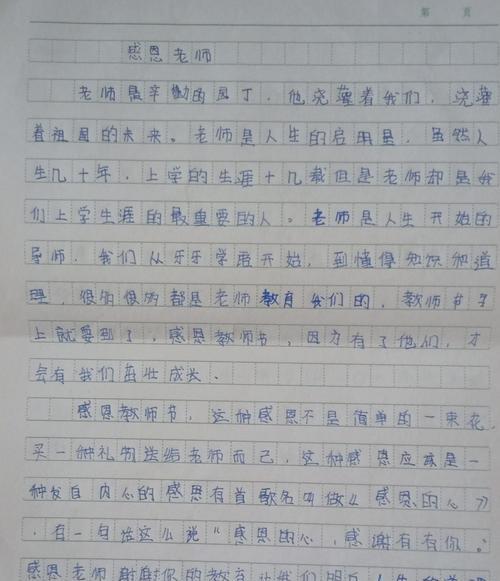 第 页
感恩老师
老师是辛勤的园丁,他浇灌着我们,浇灌
着祖国的未来。老师是人生的启明星,虽然人
生几十年,上学的生涯十几载但是老师却是我
们上学生涯的最重要的人。老师是人生开始的
导师,我们从乐乐学语开始,到懂得知识知道
理,很多很多都是老师教育我们的,教师节马
上就要到了,感恩教师节,因为有了他们,才
会有我们茁壮成长.
感恩教师节,这种感恩不是简单的一束花,
买一种礼物送给老师而已,这种感恩应该是一
种发自内心的感恩有首歌名叫做《感恩的心》
,有一句话这么说“感恩的心,感谢有有你。
感恩老师谢谢你的教育让我们明白人生的